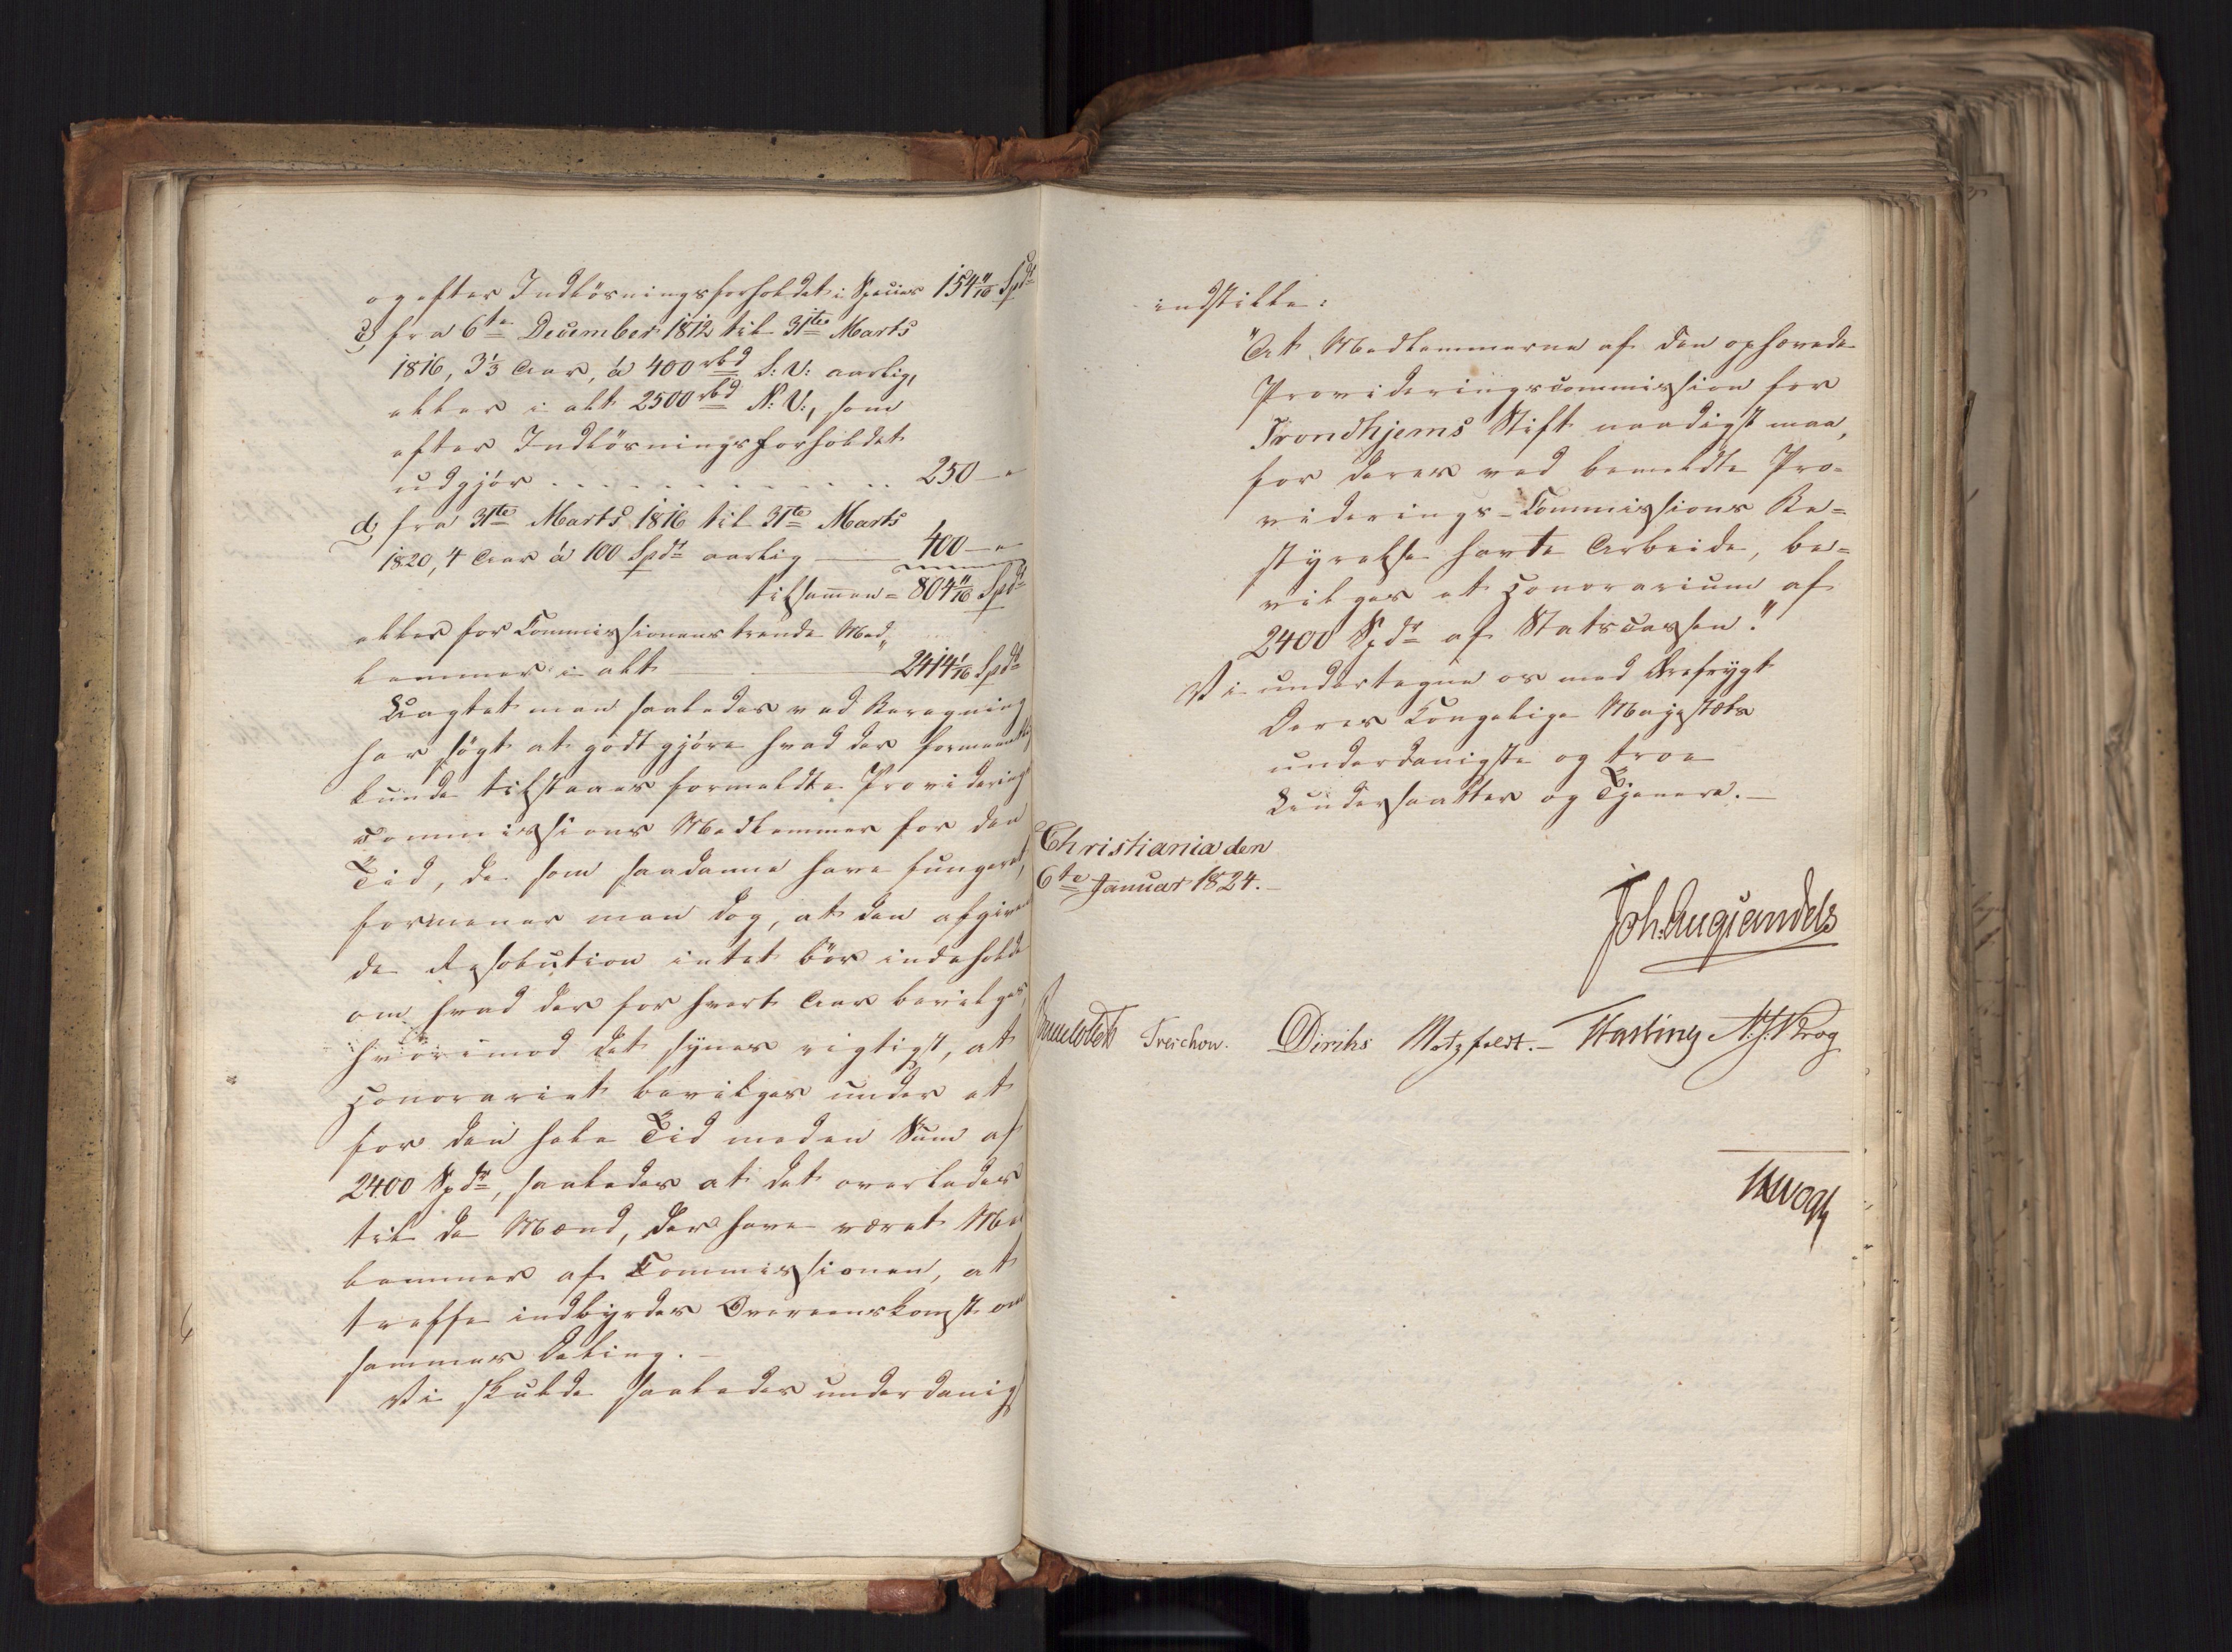 og efter Indløsningsforholdet i Species 154 11/16 Spdr
c) fra 6te December 1812 til 31te Marts
1816, 3⅓ Aar, á 400 rbd S: V: aarlig,
eller i alt 2500 rbd N: V:, som
efter Indløsningsforholdet
udgjør . . . . . . . . . . . . 250 — "
d, fra 31te Marts 1816 til 31te Marts
1820, 4 Aar á 100 Spdr aarlig — 400 — "
tilsammen = 804 11/16 Spdr
eller for Commissionens trende Med„
lemmer i alt — 2414 1/16 Spdr
Uagtet man saaledes ved Beregning
har søgt at godtgjøre hvad der formeentlig
kunde tilstaaes formeldte Providerings
commissions Medlemmer for den
Tid, de som saadanne have fungeret,
formener man dog, at den afgiven
de Resolution intet bør indeholde
om hvad der for hvert Aar bevilges,
hvorimod det synes rigtigst, at
Honorariet bevilges under et
for den hele Tid med en Sum af
2400 Spdr, saaledes at det overlades
til de Mænd, der have været Med
lemmer af Commissionen, at
træffe indbyrdes Overeenskomst om
sammes Deling. —
Vi skulde saaledes underdanigst
indstille:
"At Medlemmerne af den ophævede
Provideringscommission for
Trondhjems Stift naadigst maa,
for deres ved bemeldte Pro-
viderings-Commissions Be-
styrelse havte Arbeide, be-
vilges et Honorarium af
2400 Spdr af Statscassen."
Vi undertegne os med Ærefrygt
Deres Kongelige Majestæts
underdanigste og troe
Undersaatter og Tjenere. —
Christiania den
6te Januar 1824. —
Joh. Aug Sandels
Sommerfeldt Treschow. Diriks Motzfeldt. — Fasting N. J. Krog